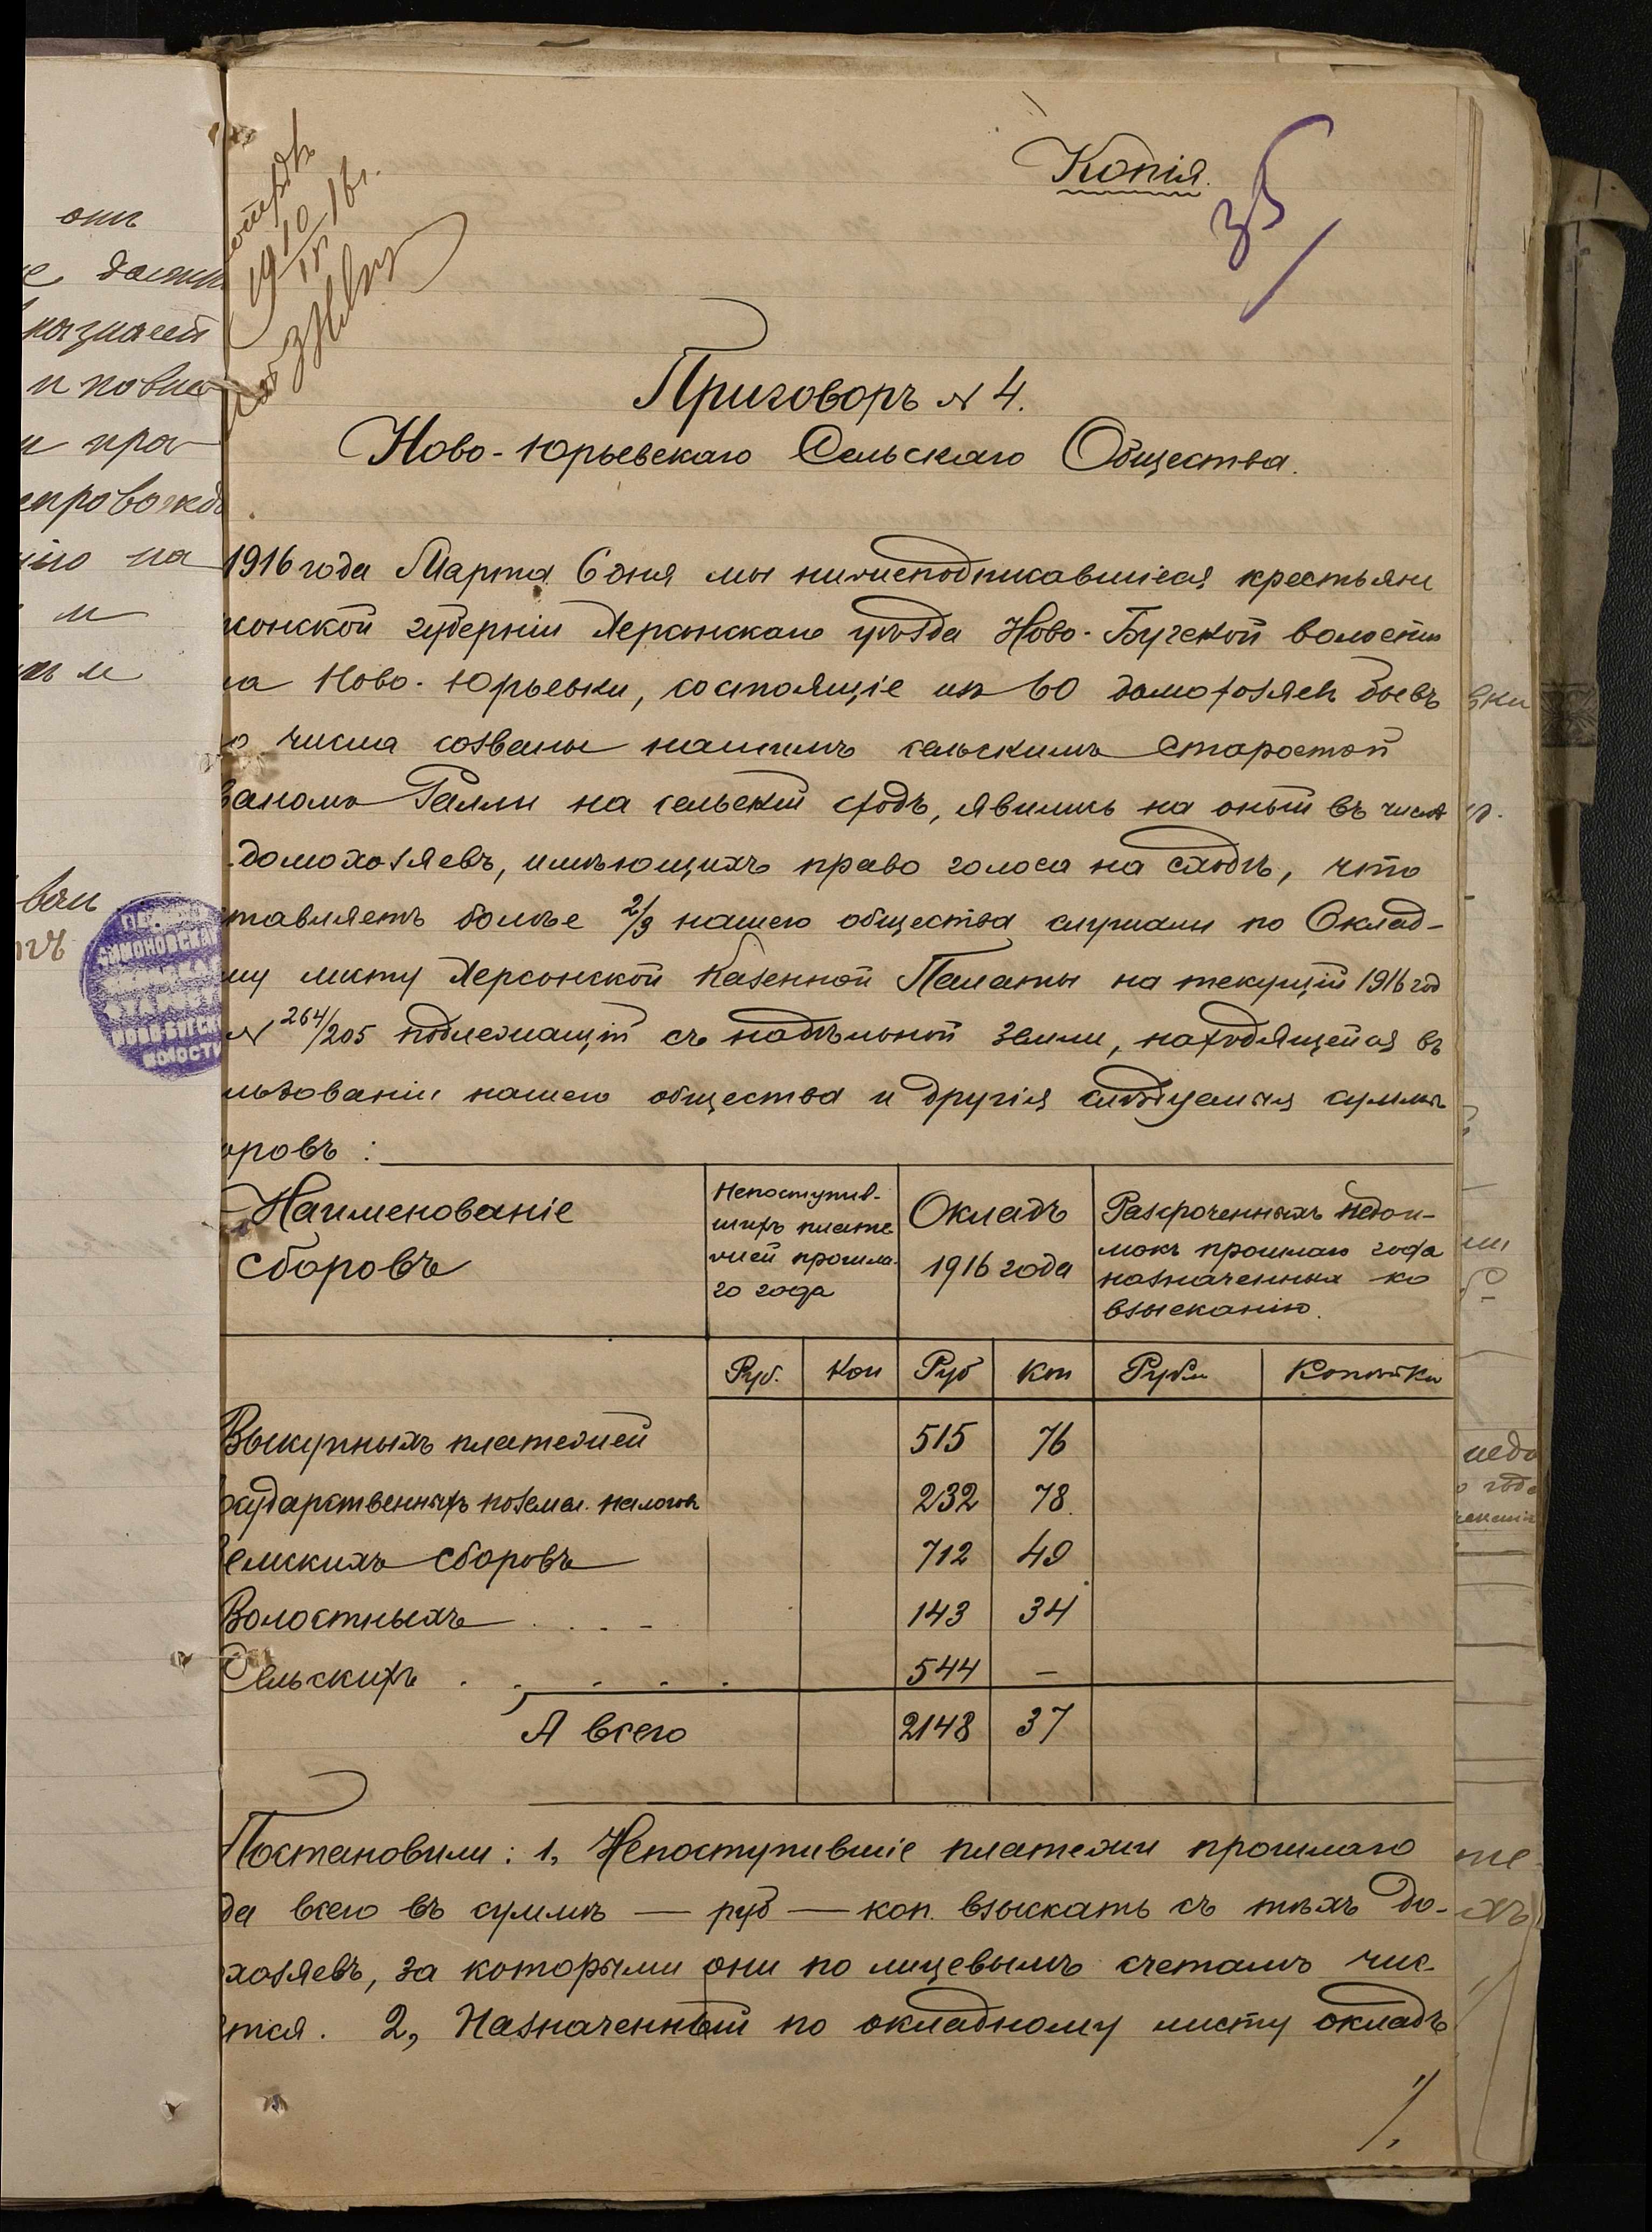 Копія.
35
Приговоръ № 4.
Ново-Юрьевскаго Сельскаго Общества.
1916 года Марта 6 дня мы нижеподписавшіеся крестьяне
конской губерніи Херсонскаго уѣзда Ново-Бугской волости
ла Ново-Юрьевки, состоящіе изъ 60 домохозяевъ бывъ
о числа созваны нашимъ сельскимъ Старостой
ваномъ Галли на сельскій сходъ, явились на оный въ числѣ
домохозяевъ, имѣющихъ право голоса на сходѣ, что
тавляетъ болѣе 2/3 нашего общества слушали по Оклад-
му листу Херсонской Казенной Палаты на текущій 1916 год
№ 264/205 подлежащій съ надѣльной земли, находящейся въ
льзованіи нашего общества и другія слѣдуемыя суммы
оровъ:
Наименованіе сборовъ
Непоступив-
шихъ плате
жей прошла-
го года
Окладъ
1916 года
Разсроченныхъ недои-
мокъ прошлаго года
назначенныя ко
взысканію.
Руб. Коп Руб Коп Рубли Копѣйки
Выкупныхъ платежей 515 76
осударственныхъ позем. налогов 232 78.
емскихъ сборовъ 712 49
Волостныхъ . . . - 143 34
Сельскихъ . . . . . 544 —
А всего 2148 37
Постановили: 1, Непоступившіе платежи прошлаго
да всего въ суммѣ — руб — коп. взыскать съ тѣхъ до-
хозяевъ, за которыми они по лицевымъ счетамъ чис-
тся. 2, Назначенный по окладному листу окладъ